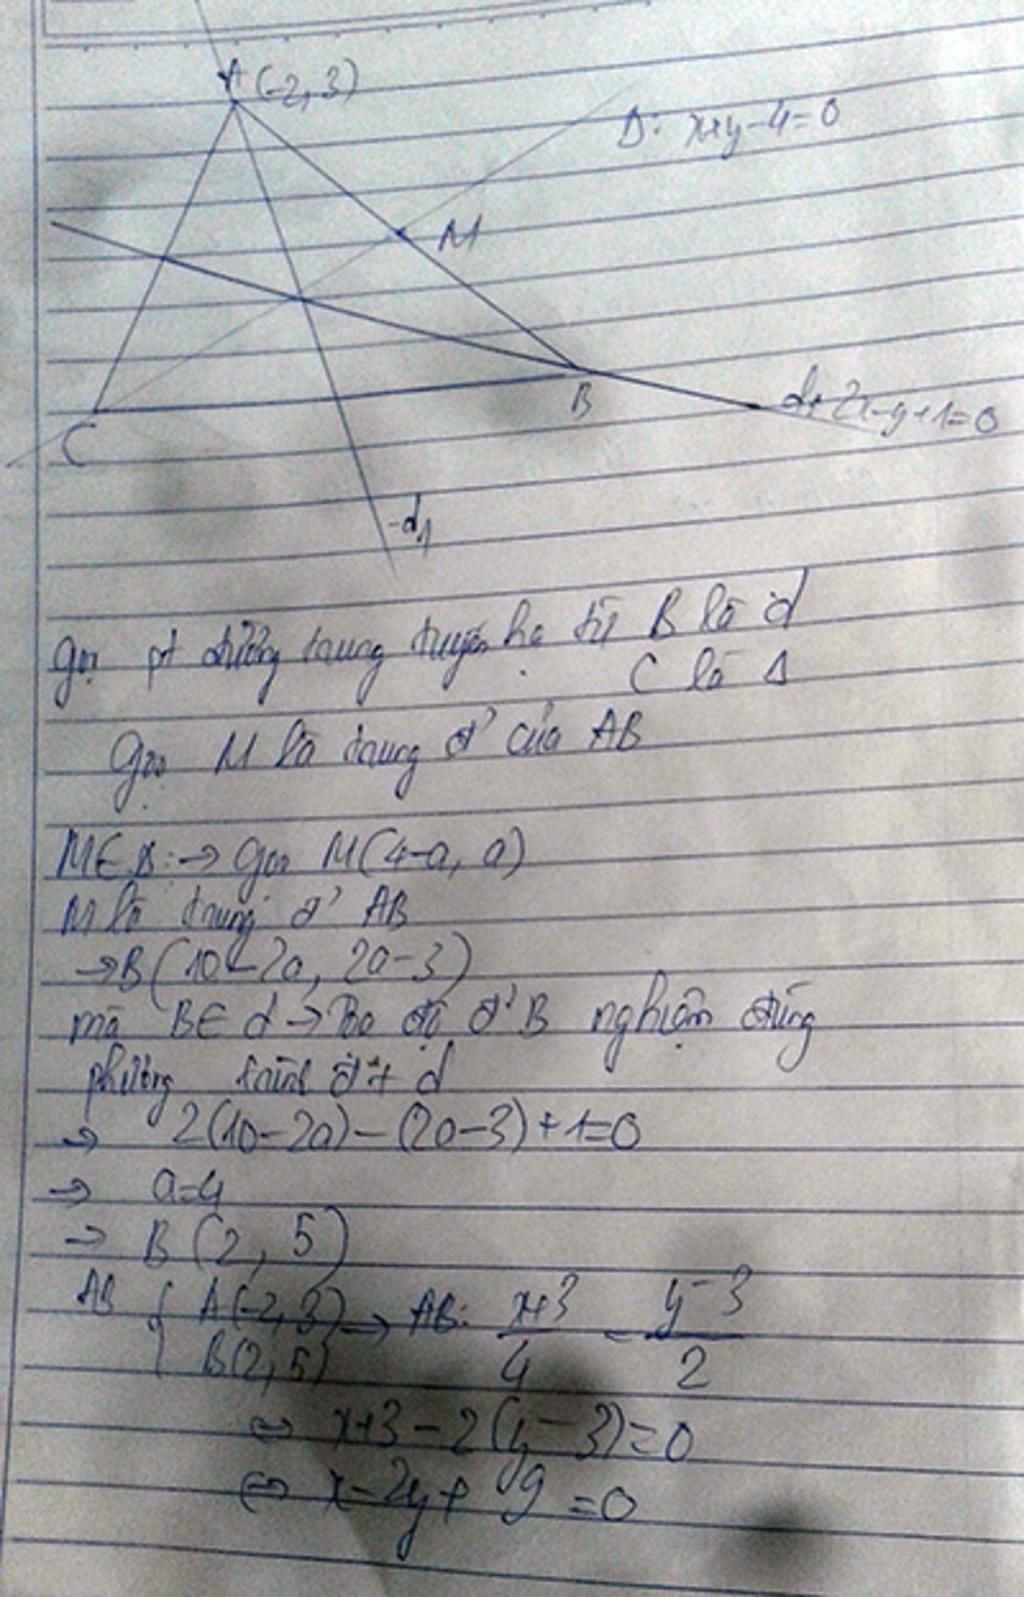 A(-2, 3)
Δ: x+y-4=0
M
B
d: 2x-y+1=0
C
d₁
Gọi pt đường trung tuyến hạ từ B là d
C là Δ
Gọi M là trung đ' của AB
M∈Δ: → Gọi M(4-a, a)
M là trung đ' AB
→ B(10-2a, 2a-3)
mà B∈d → Tọa độ đ' B nghiệm đúng
phương trình đ't d
→ 2(10-2a) - (2a-3) + 1=0
→ a=4
→ B (2, 5)
AB { A(-2,3) → AB: x+3/4 = y-3/2
B(2,5)
⇔ x+3-2(y-3)=0
⇔ x-2y+9=0